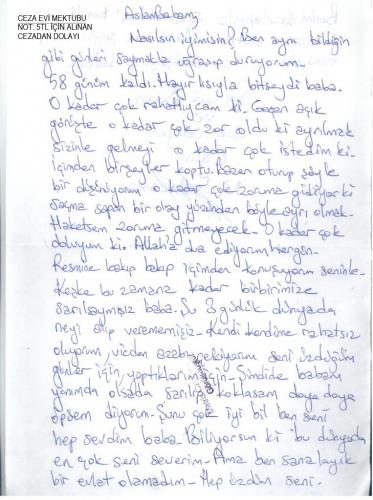 CEZA EVİ MEKTUBU
NOT: 5TL İÇİN ALINAN
CEZADAN DOLAYI
Aslanbabam,
Nasılsın iyimisin? Ben aynı bildiğin
gibi günleri saymakla uğraşıp duruyorum.
58 günüm kaldı. Hayırlısıyla bitseydi baba.
O kadar çok rahatlıycam ki. Geçen açık
görüşte o kadar çok zor oldu ki ayrılmak
sizinle gelmeyi o kadar çok istedim ki.
İçimden birşeyler koptu. Bazen oturup şöyle
bir düşünüyorum o kadar çok zoruma gidiyor ki
saçma sapan bir olay yüzünden böyle ayrı olmak.
Haketsem zoruma gitmeyecek. O kadar çok
doluyum ki. Allah'a dua ediyorum hergün.
Resmine bakıp bakıp içimden konuşuyorum seninle.
Keşke bu zamana kadar birbirimize
sarılsaymışız baba. Şu 3 günlük dünyada
neyi alıp verememişiz. Kendi kendime rahatsız
oluyorum, vicdan azabı çekiyorum seni üzdüğüm
günler için, yaptıklarım için. Şimdide babam
yanımda olsada sarılıp koklasam doya doya
öpsem diyorum. Şunu çok iyi bil ben seni
hep sevdim baba. Biliyorsun ki bu dünyada
en çok seni severim. Ama ben sana layık
bir evlat olamadım. Hep üzdüm seni.